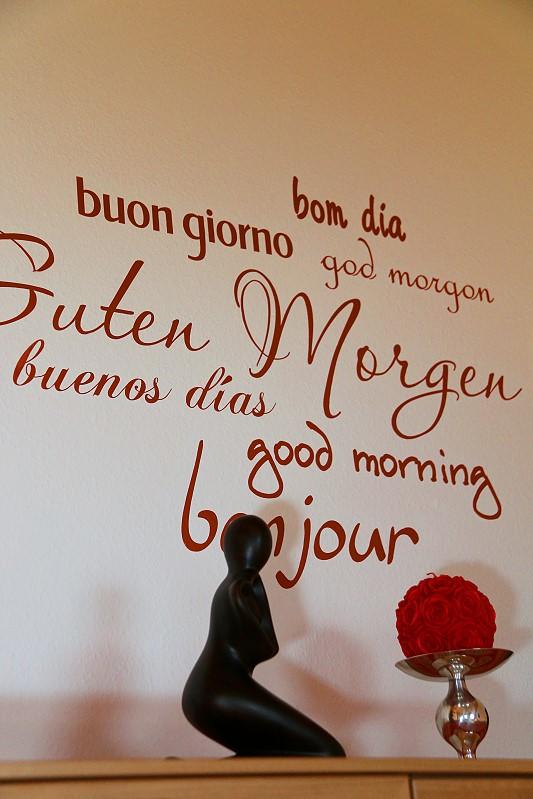 buon giorno
bom dia
god morgon
Guten Morgen
buenos días
good morning
bonjour